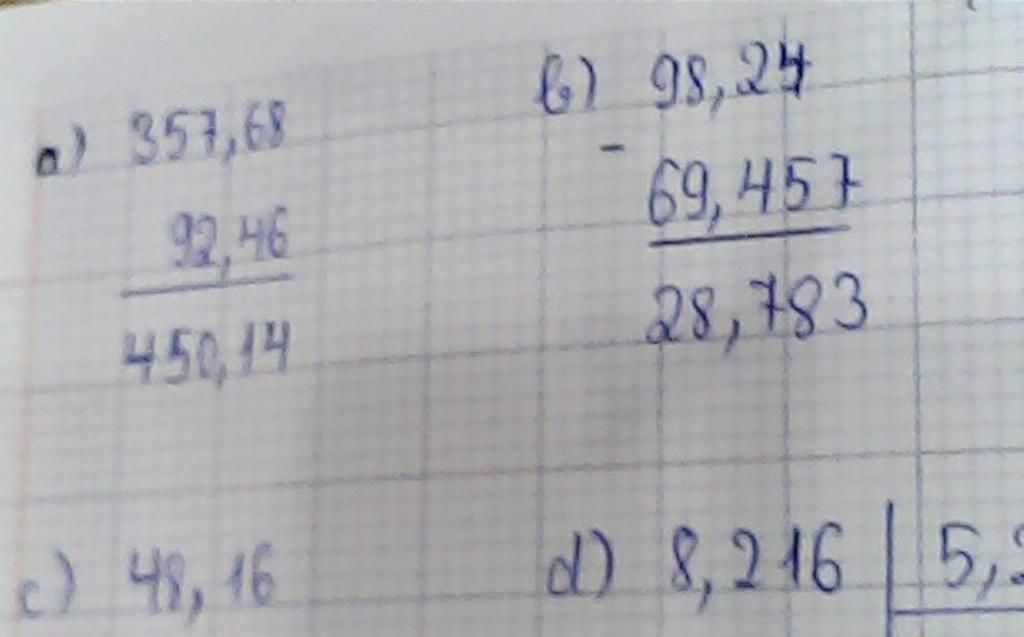 a) 357,68
92,46
450,14
b) 98,24
-
69,457
28,783
c) 48,16
d) 8,216 5,